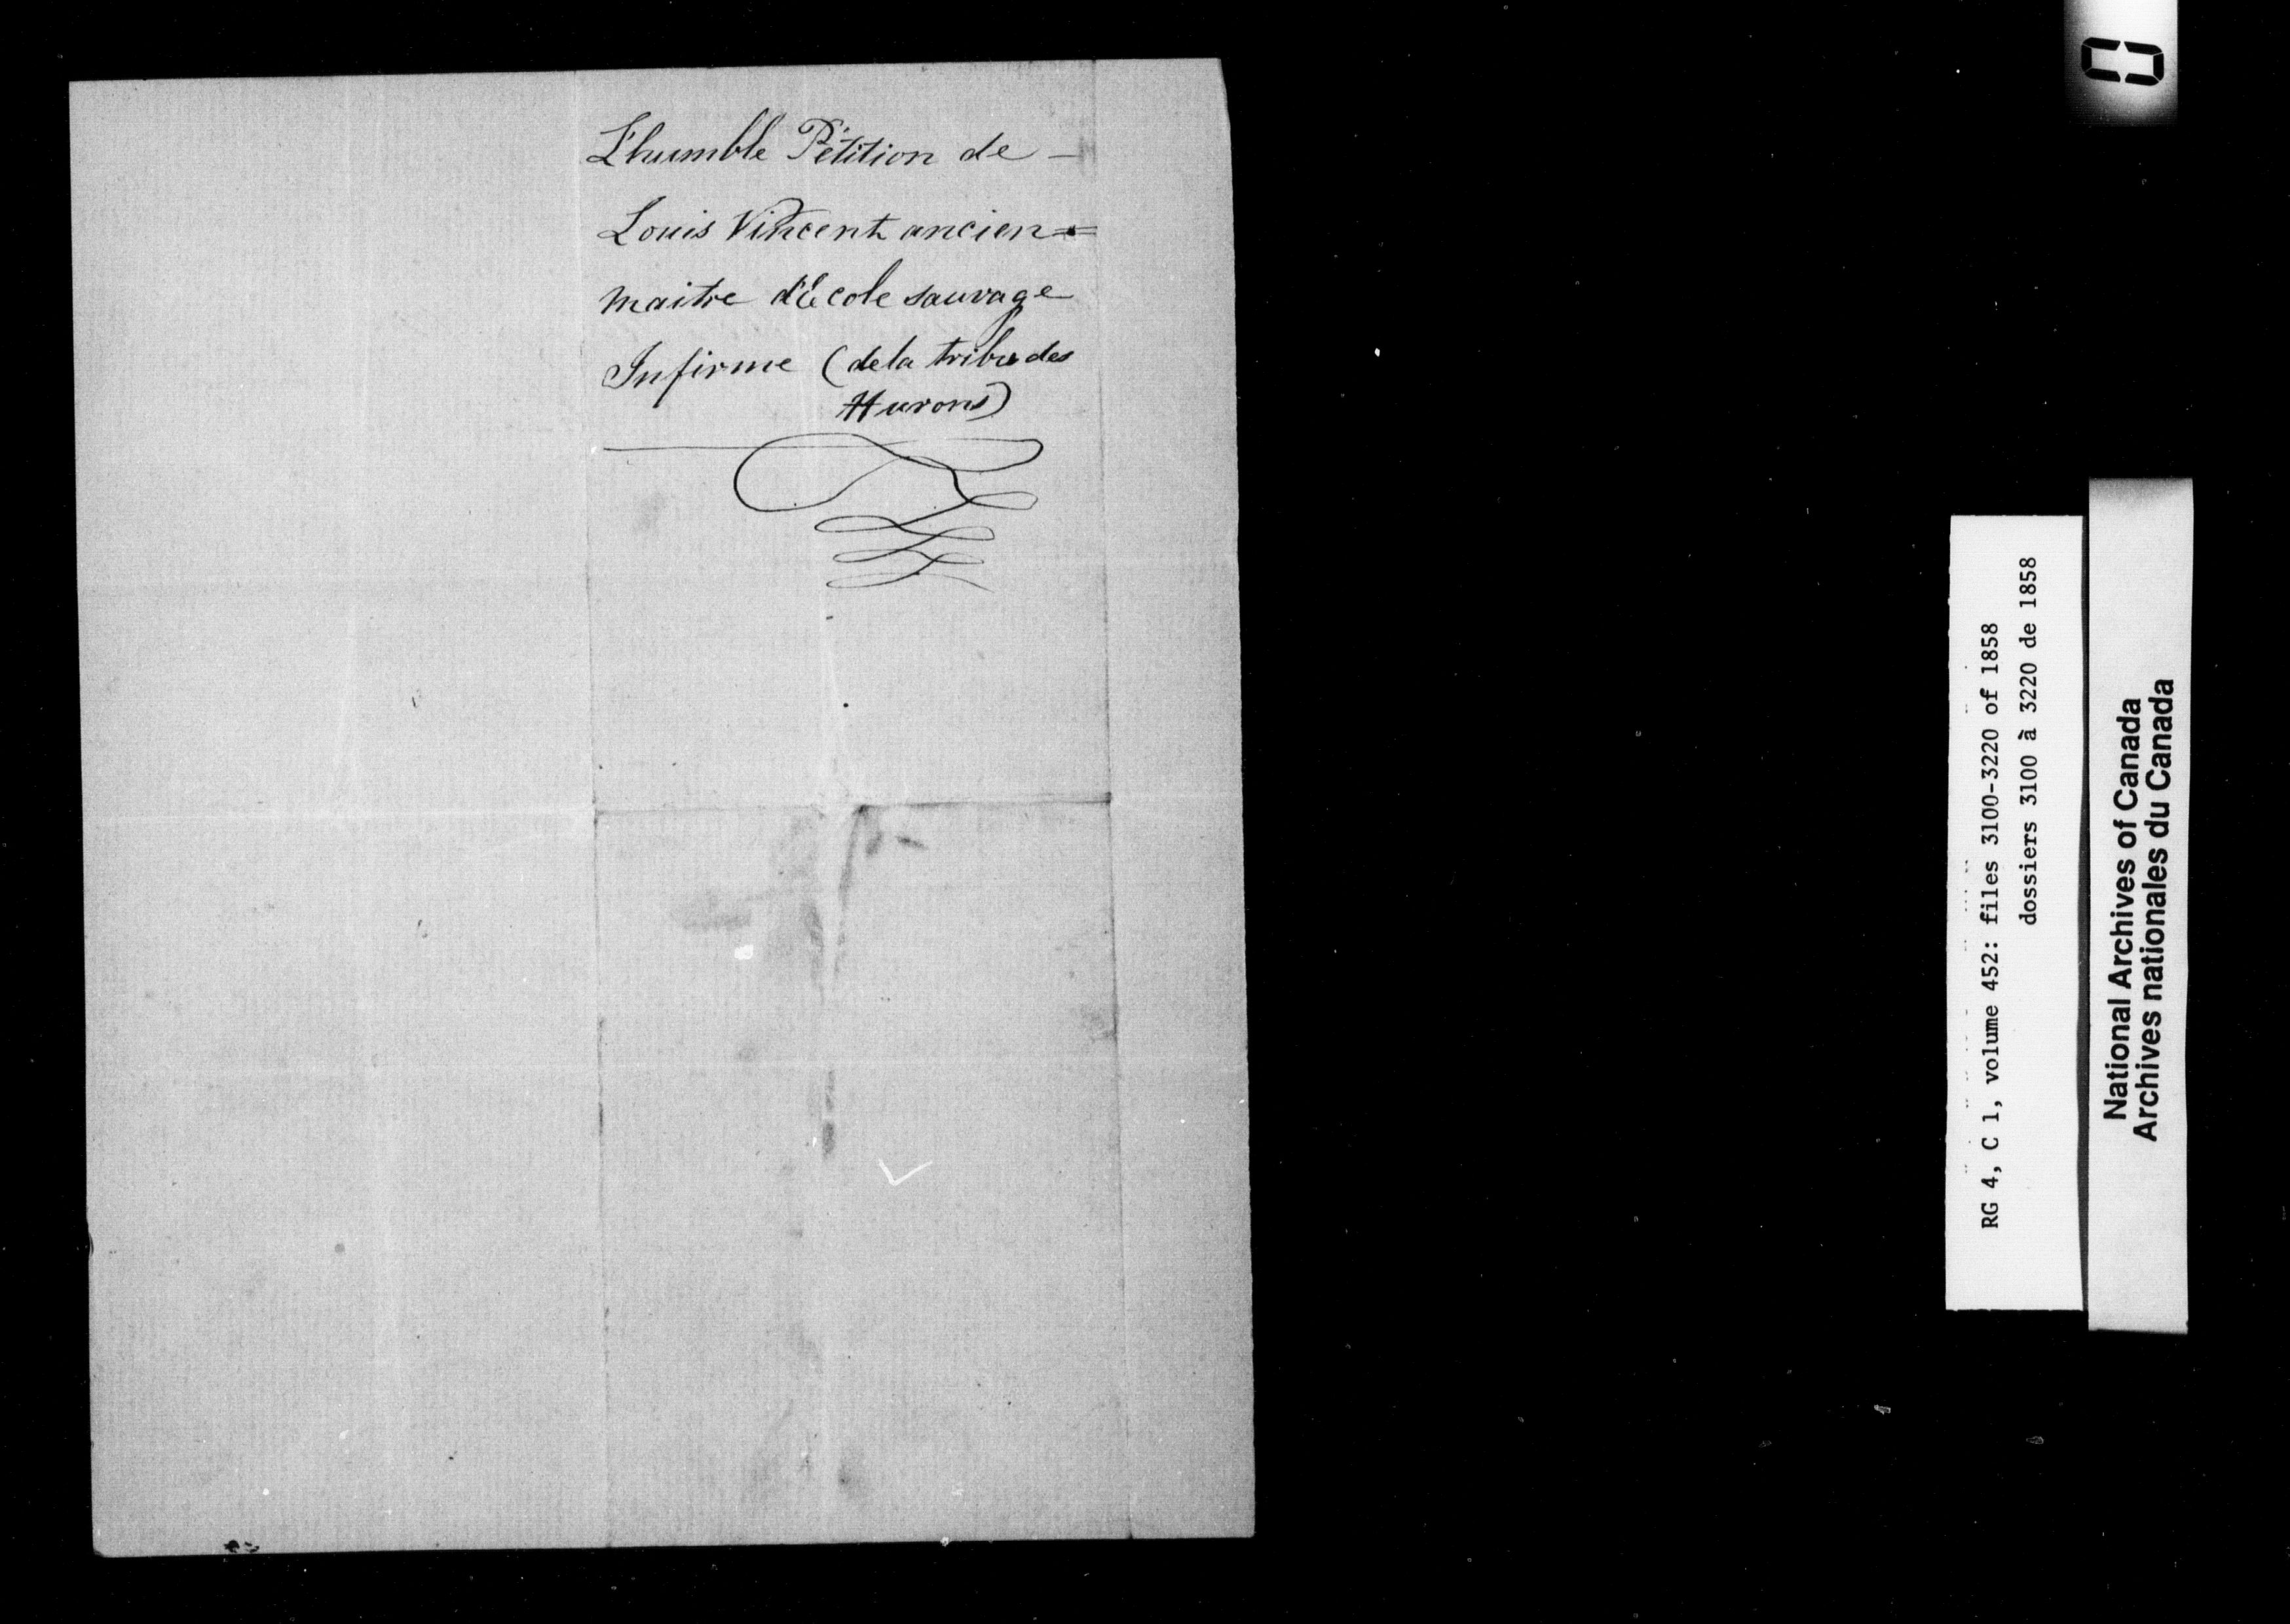 L'humble Pétition de —
Louis Vincent ancien =
maitre d'École sauvage
Infirme (de la tribu des
Hurons)
RG 4, C 1, volume 452: files 3100-3220 of 1858
dossiers 3100 à 3220 de 1858
National Archives of Canada
Archives nationales du Canada